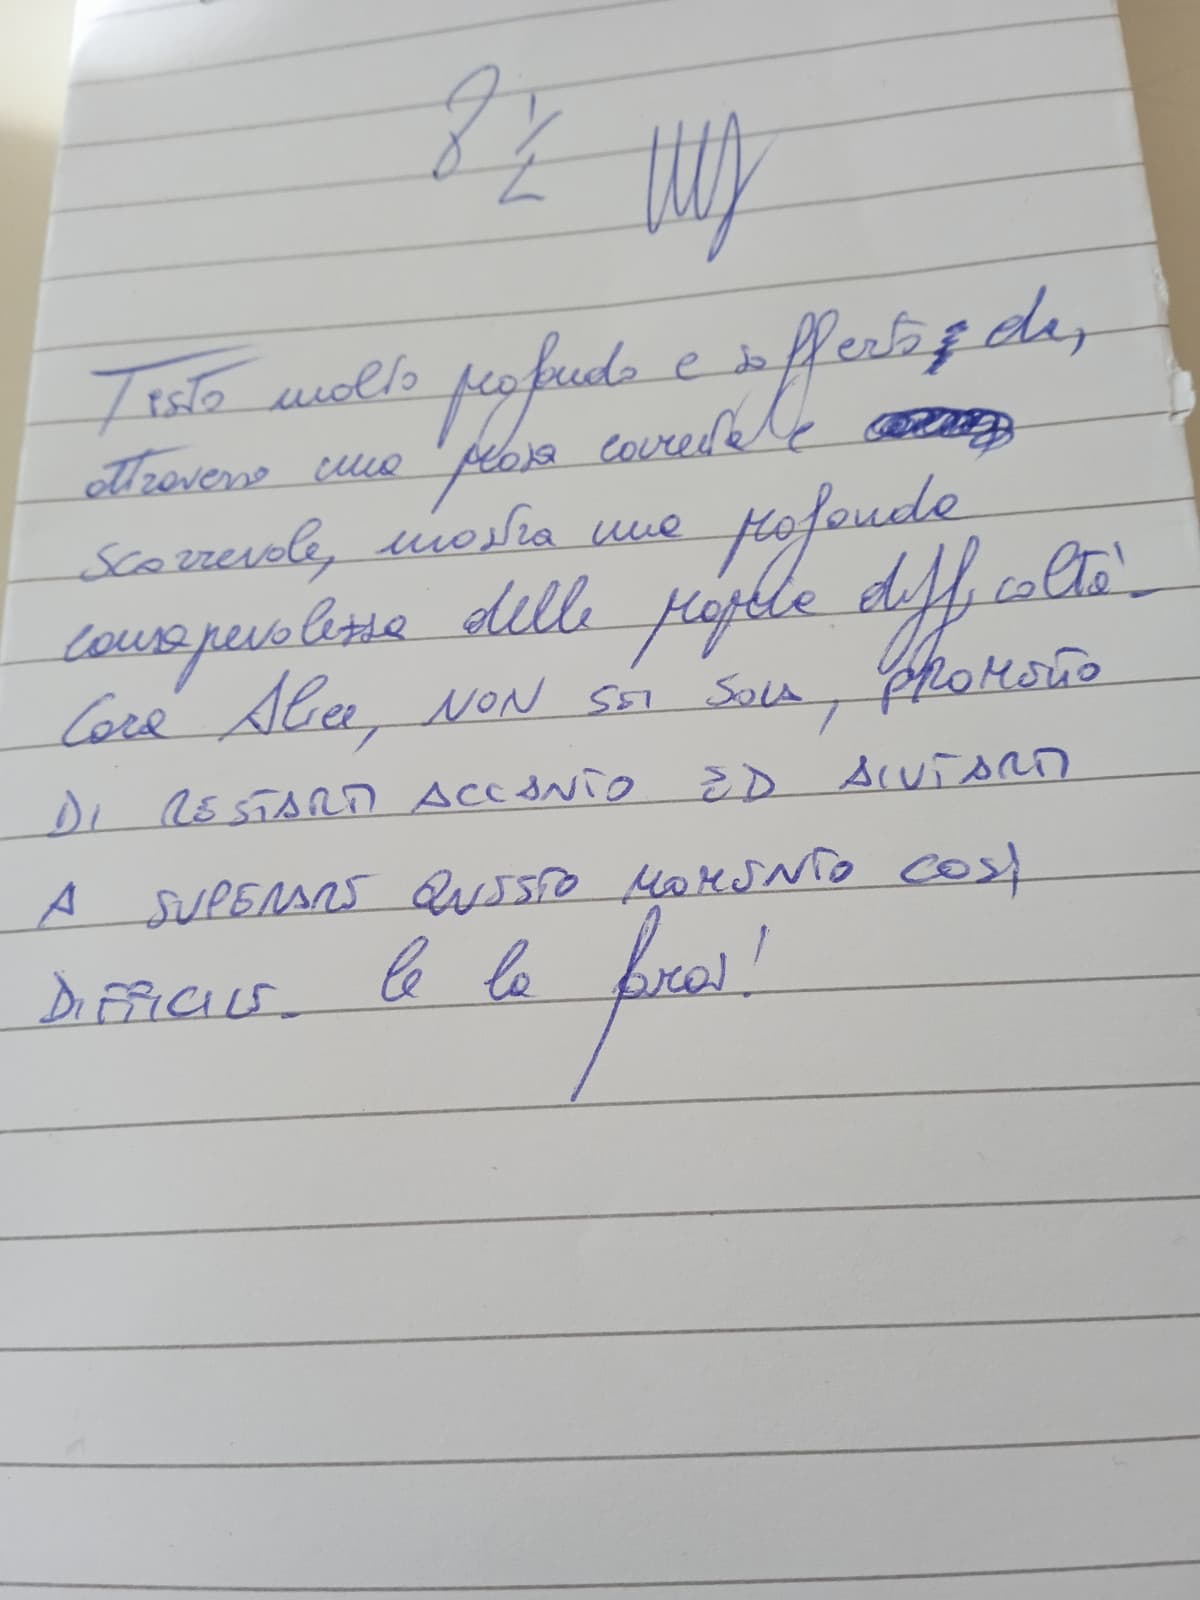 8 ½
Testo molto profondo e sofferto, che,
attraverso una prosa corretta e
scorrevole, mostra una profonda
consapevolezza delle proprie difficoltà.
Cara Alice, NON SEI SOLA, PROMETTO
DI RESTARTI ACCANTO ED AIUTARTI
A SUPERARE QUESTO MOMENTO COSÌ
DIFFICILE. Ce la farai!